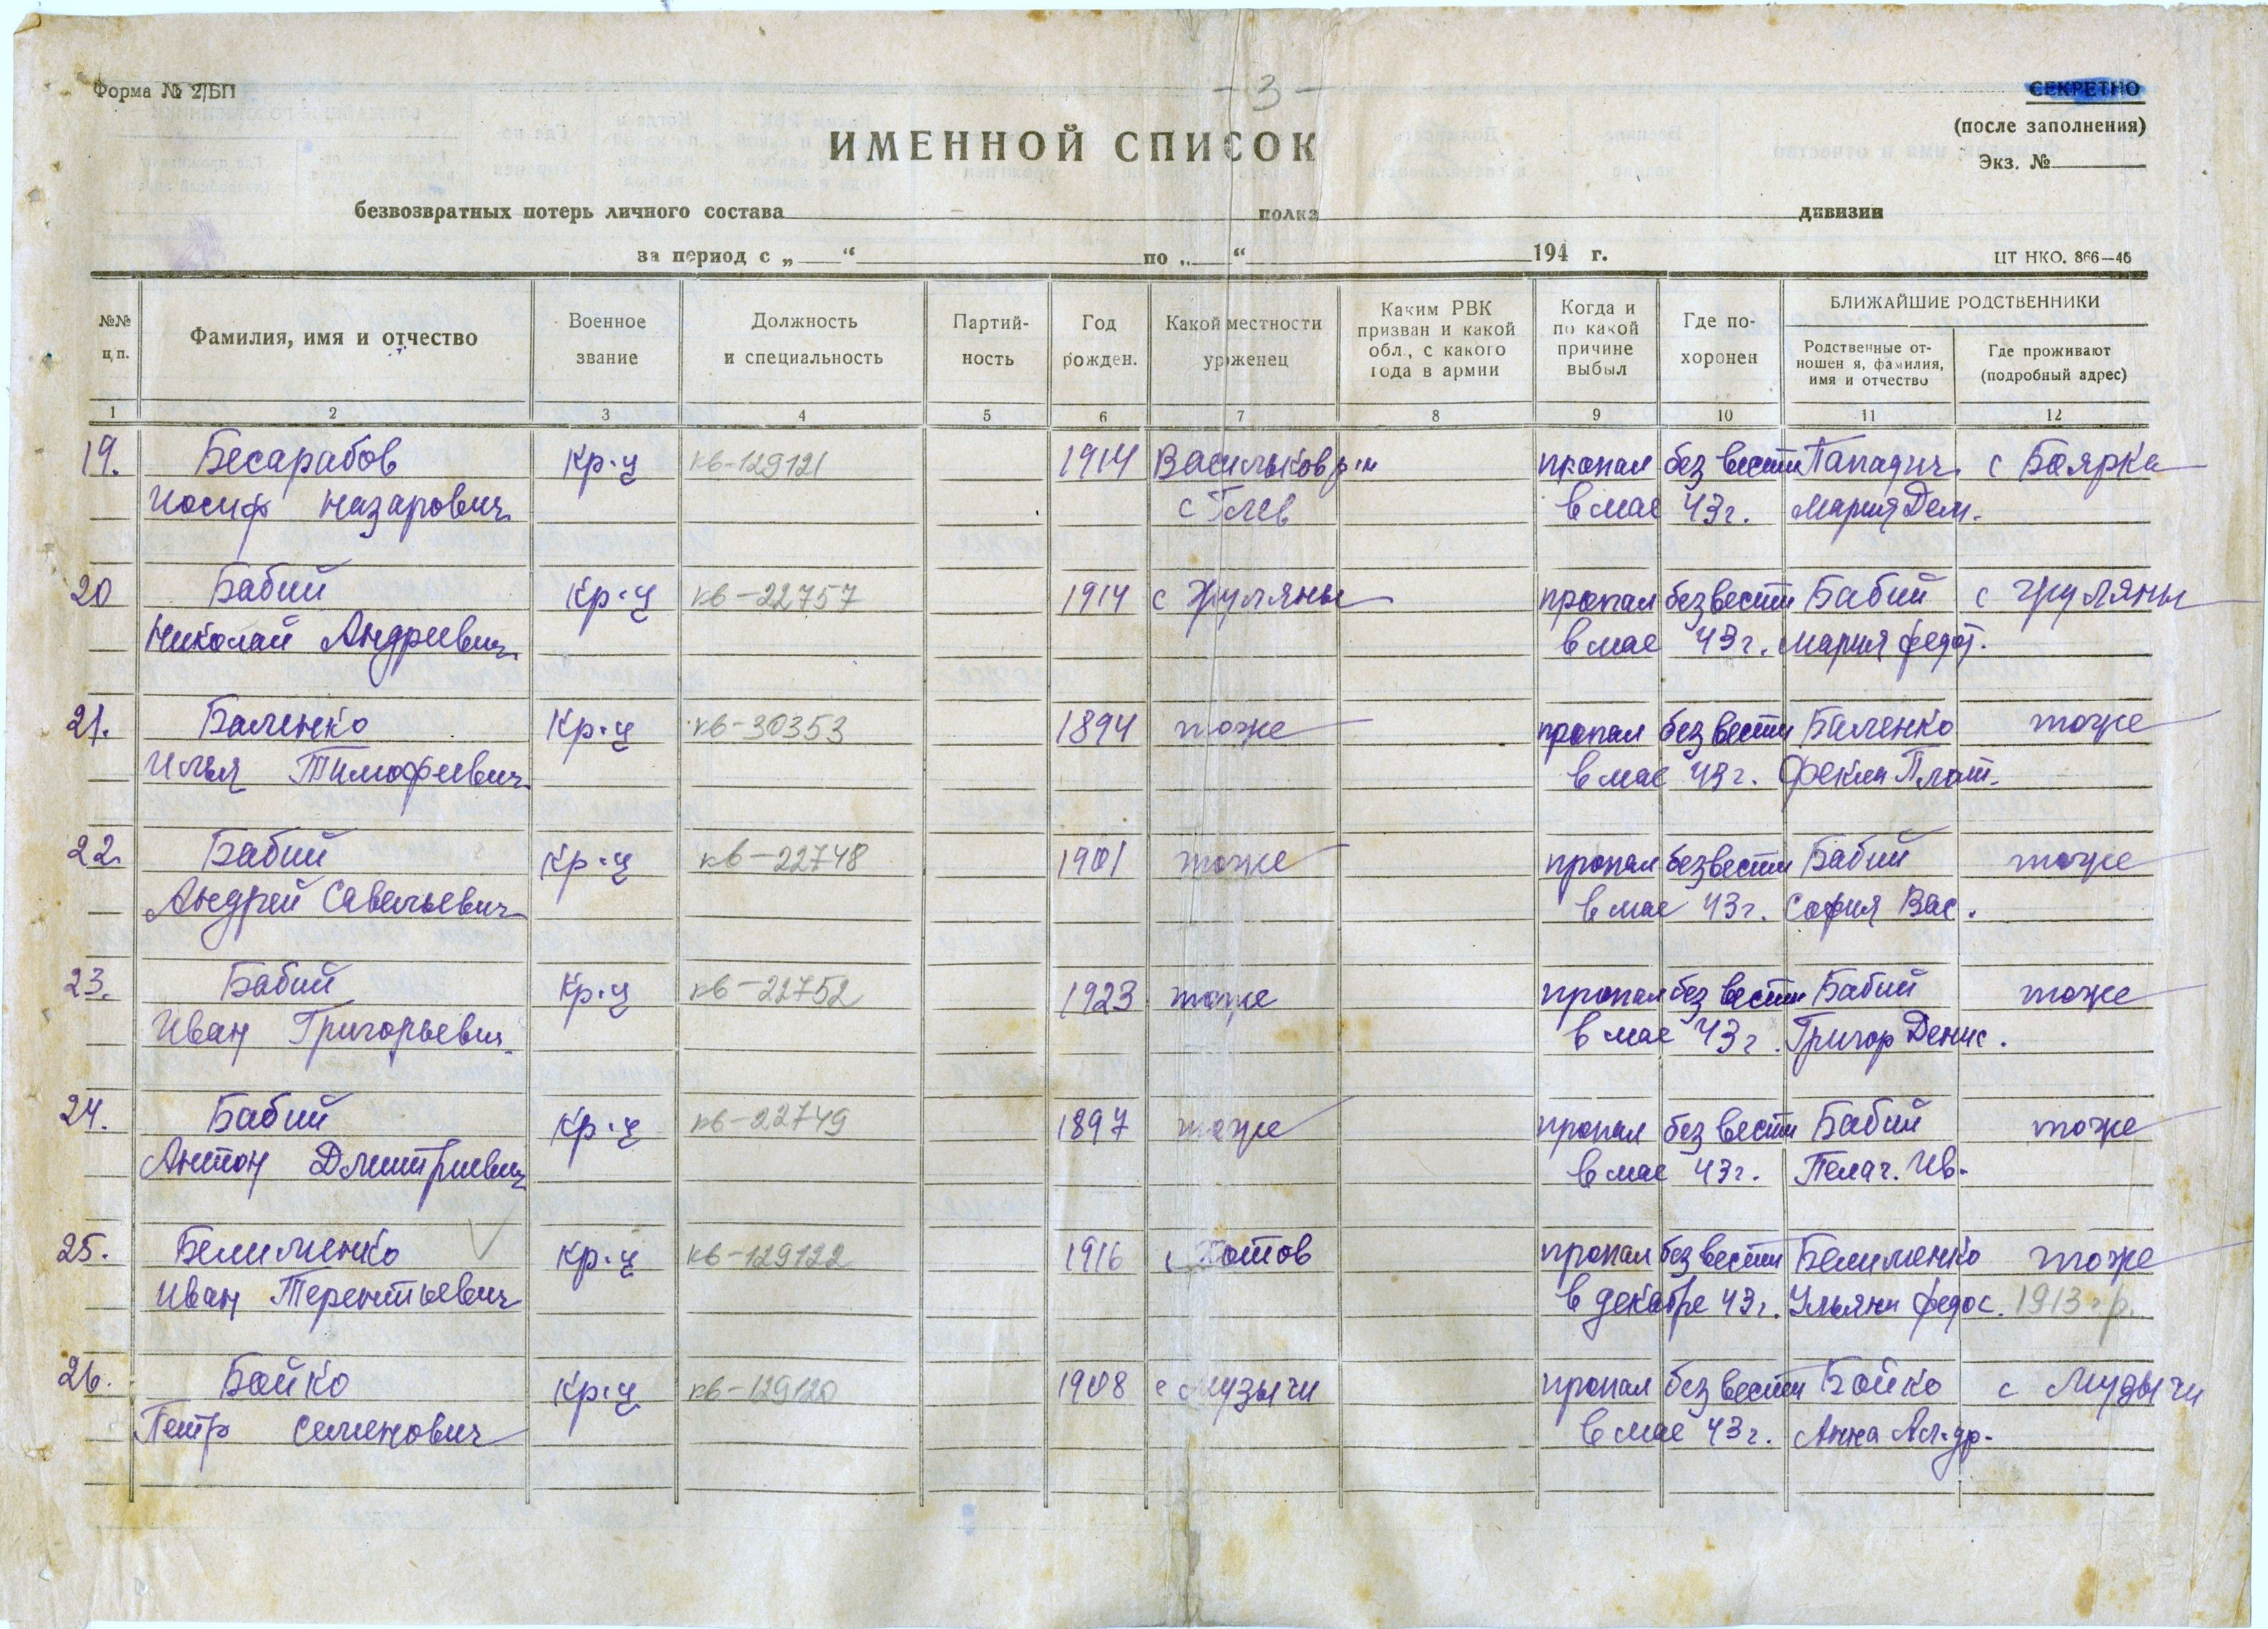 Форма № 2/БП
- 3 -
СЕКРЕТНО
(после заполнения)
Экз. №
ИМЕННОЙ СПИСОК
безвозвратных потерь личного состава полка дивизии
за период с „ “ по „ “ 194 г.
ЦТ НКО. 866—46
№№ п.п.
Фамилия, имя и отчество
Военное звание
Должность и специальность
Партийность
Год рожден.
Какой местности уроженец
Каким РВК призван и какой обл., с какого года в армии
Когда и по какой причине выбыл
Где похоронен
БЛИЖАЙШИЕ РОДСТВЕННИКИ
Родственные отношения, фамилия, имя и отчество
Где проживают (подробный адрес)
1 2 3 4 5 6 7 8 9 10 11 12
19. Бесарабов Кр-ц кв-129121 1914 Васильков р-н пропал без вести с Боярка
Иосиф Назарович в мае 43 г. Мария Дем.
20 Бабий Кр-ц кв-22757 1914 с Жуляны пропал без вести Бабий с Жуляны
Николай Андреевич в мае 43 г. Мария Федот.
21. Баленко Кр-ц кв-30353 1894 тоже пропал без вести Баленко тоже
Илья Тимофеевич в мае 43 г. Фекла Плат.
22. Бабий Кр-ц кв-22748 1901 тоже пропал без вести Бабий тоже
Андрей Савельевич в мае 43 г. София Вас.
23. Бабий Кр-ц кв-22752 1923 тоже пропал без вести Бабий тоже
Иван Григорьевич в мае 43 г. Григор Денис.
24. Бабий Кр-ц кв-22749 1897 тоже пропал без вести Бабий тоже
Антон Дмитриевич в мае 43 г. Пелаг. Ив.
25. Белименко Кр-ц кв-129122 1916 с Хотов пропал без вести Белименко тоже
Иван Терентьевич в декабре 43 г. Ульяна Федос. 1913 г.р.
26. Бойко Кр-ц кв-129120 1908 с Музычи пропал без вести Бойко с Музычи
Петр Семенович в мае 43 г. Анна Ал-др.